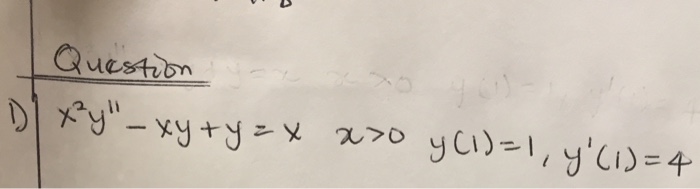 Question
1) x²y" - xy + y = x x>0 y(1)=1, y'(1)=4